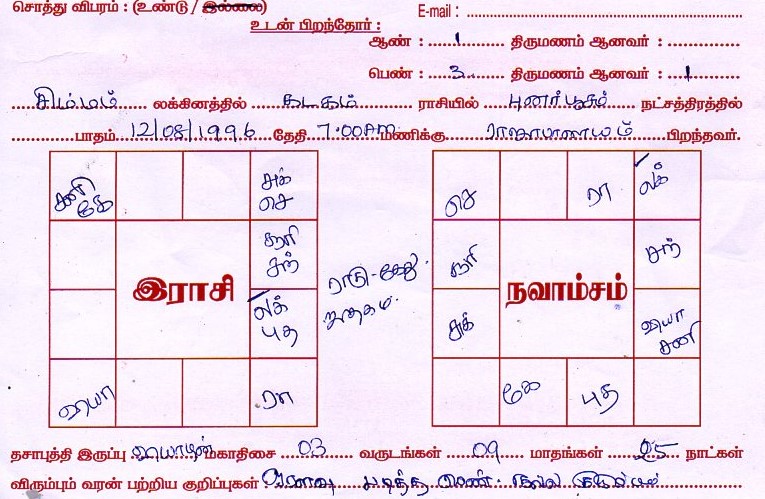 சொத்து விபரம் : (உண்டு / இல்லை) E-mail :
உடன் பிறந்தோர் :
ஆண் : 1 திருமணம் ஆனவர் :
பெண் : 3 திருமணம் ஆனவர் : 1
சிம்மம் லக்கினத்தில் கடகம் ராசியில் புனர்பூசம் நட்சத்திரத்தில்
பாதம் 12/08/1996 தேதி 7:00AM மணிக்கு பிறந்தவர்.
சனி கே சுக் செ செ ரா லக்
சூரி சந் சூரி சந்
இராசி ராகு - கேது நவாம்சம்
லக் புத ஜாதகம். சுக் வியா சனி
வியா ரா கே புத
தசாபுத்தி இருப்பு வியாழன் மகாதிசை 03 வருடங்கள் 09 மாதங்கள் 25 நாட்கள்
விரும்பும் வரன் பற்றிய குறிப்புகள் படித்த பெண். நல்ல குடும்பம்